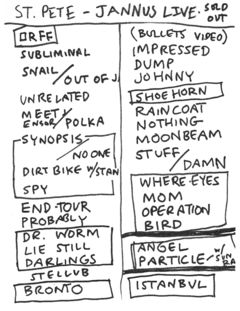 ST. PETE - JANNUS LIVE. SOLD OUT
ORFF
SUBLIMINAL
SNAIL / OUT OF J
UNRELATED
MEET / ENSOR / POLKA
SYNOPSIS
NO ONE
DIRT BIKE W/STAN
SPY
END TOUR
PROBABLY
DR. WORM
LIE STILL
DARLINGS
STELLUB
BRONTO
(BULLETS VIDEO)
IMPRESSED
DUMP
JOHNNY
SHOEHORN
RAINCOAT
NOTHING
MOONBEAM
STUFF / DAMN
WHERE EYES
MOM
OPERATION
BIRD
ANGEL
PARTICLE W/ SUN RA
ISTANBUL